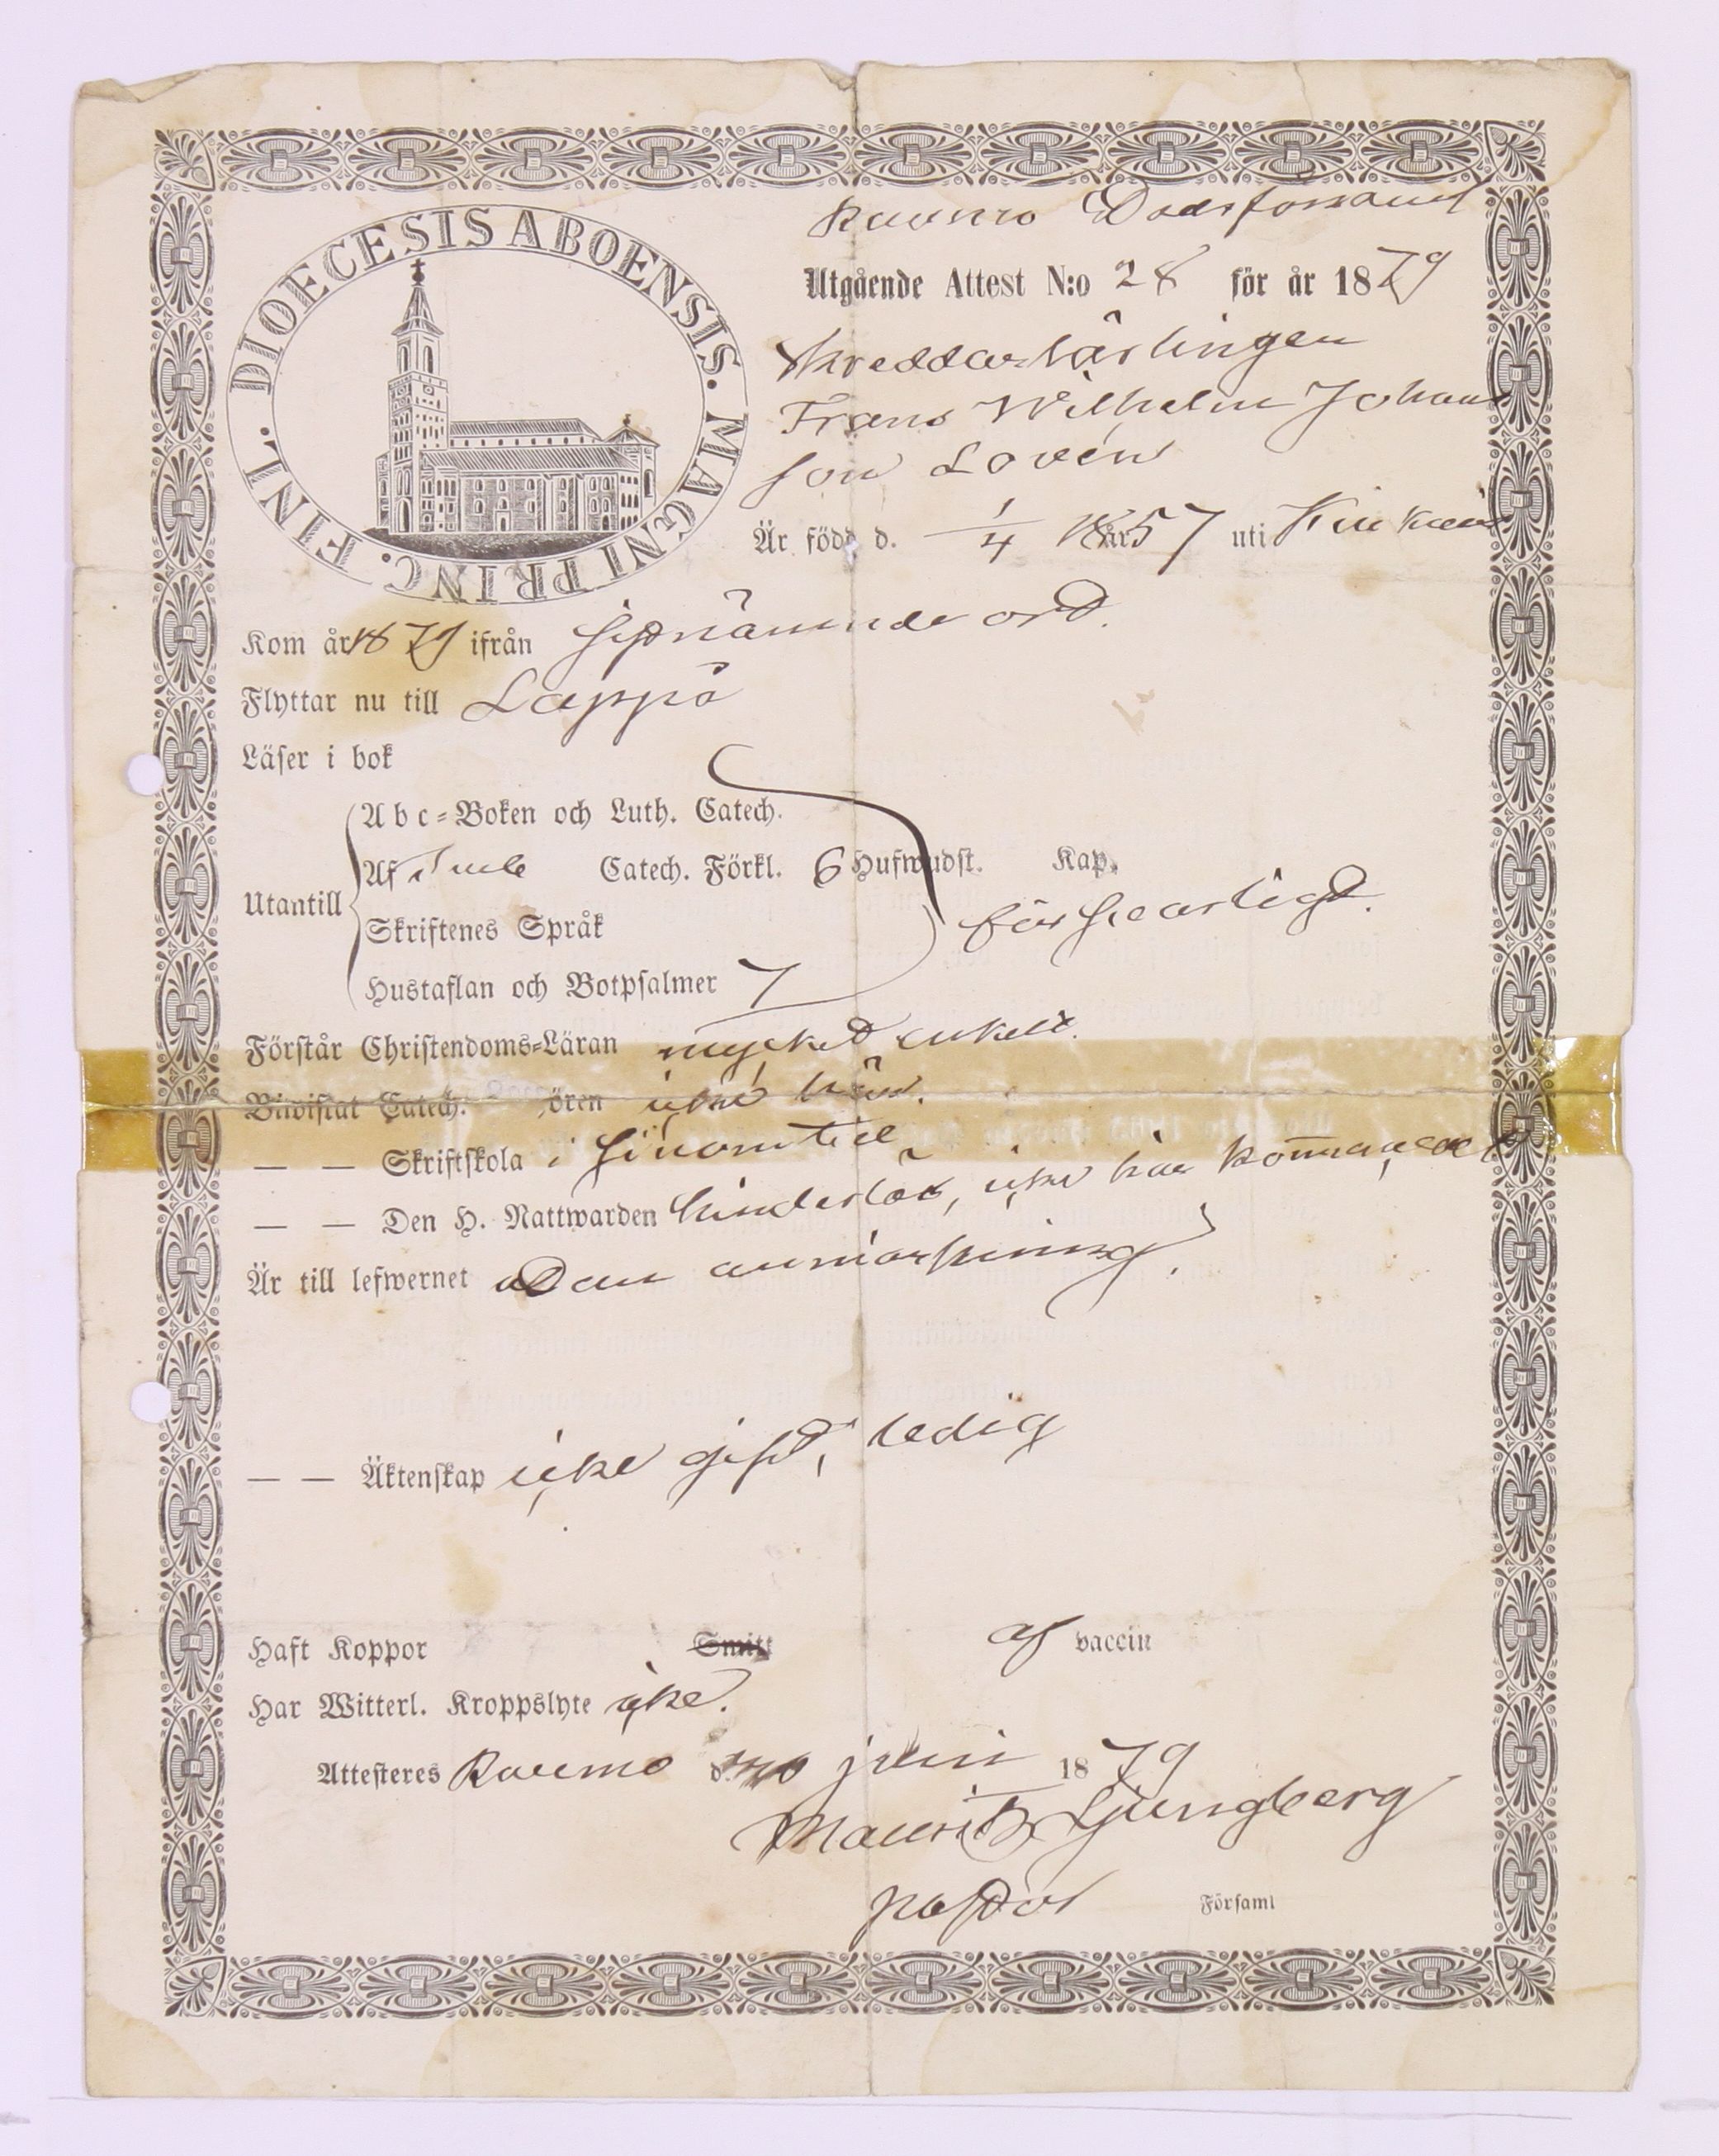 DIOECESIS ABOENSIS. MAGNI PRINC. FINL.
Raumo Stadsförsaml
Utgående Attest N:o 28 för år 1879
Skreddarlärlingen
Frans Wilhelm Johans
son Lovén
Är född d. 1/4 18 år 57 uti Kiukais
Kom år 1879 ifrån sistnämnde ort.
Flyttar nu till Lappo
Läser i bok
Utantill
Abc-Boken och Luth. Catech.
Af Catech. Förkl. 6 Hufwudst. Kap.
försvarligt.
Skriftenes Språk
Hustaflan och Botpsalmer 7
Förstår Christendoms-Läran mycket enkelt.
Biwistat Catech. ören icke här.
— — Skriftskola i sinom tid
— — Den H. Nattwarden hinderlös, icke här
Är till lefwernet utan anmärkning.
— — Äktenskap icke gift, ledig
Haft Koppor Smitt af vaccin
Har Witterl. Kroppslyte icke.
Attesteres Raumo d. juni 1879
Mauritz Ljungberg
pastor Församl